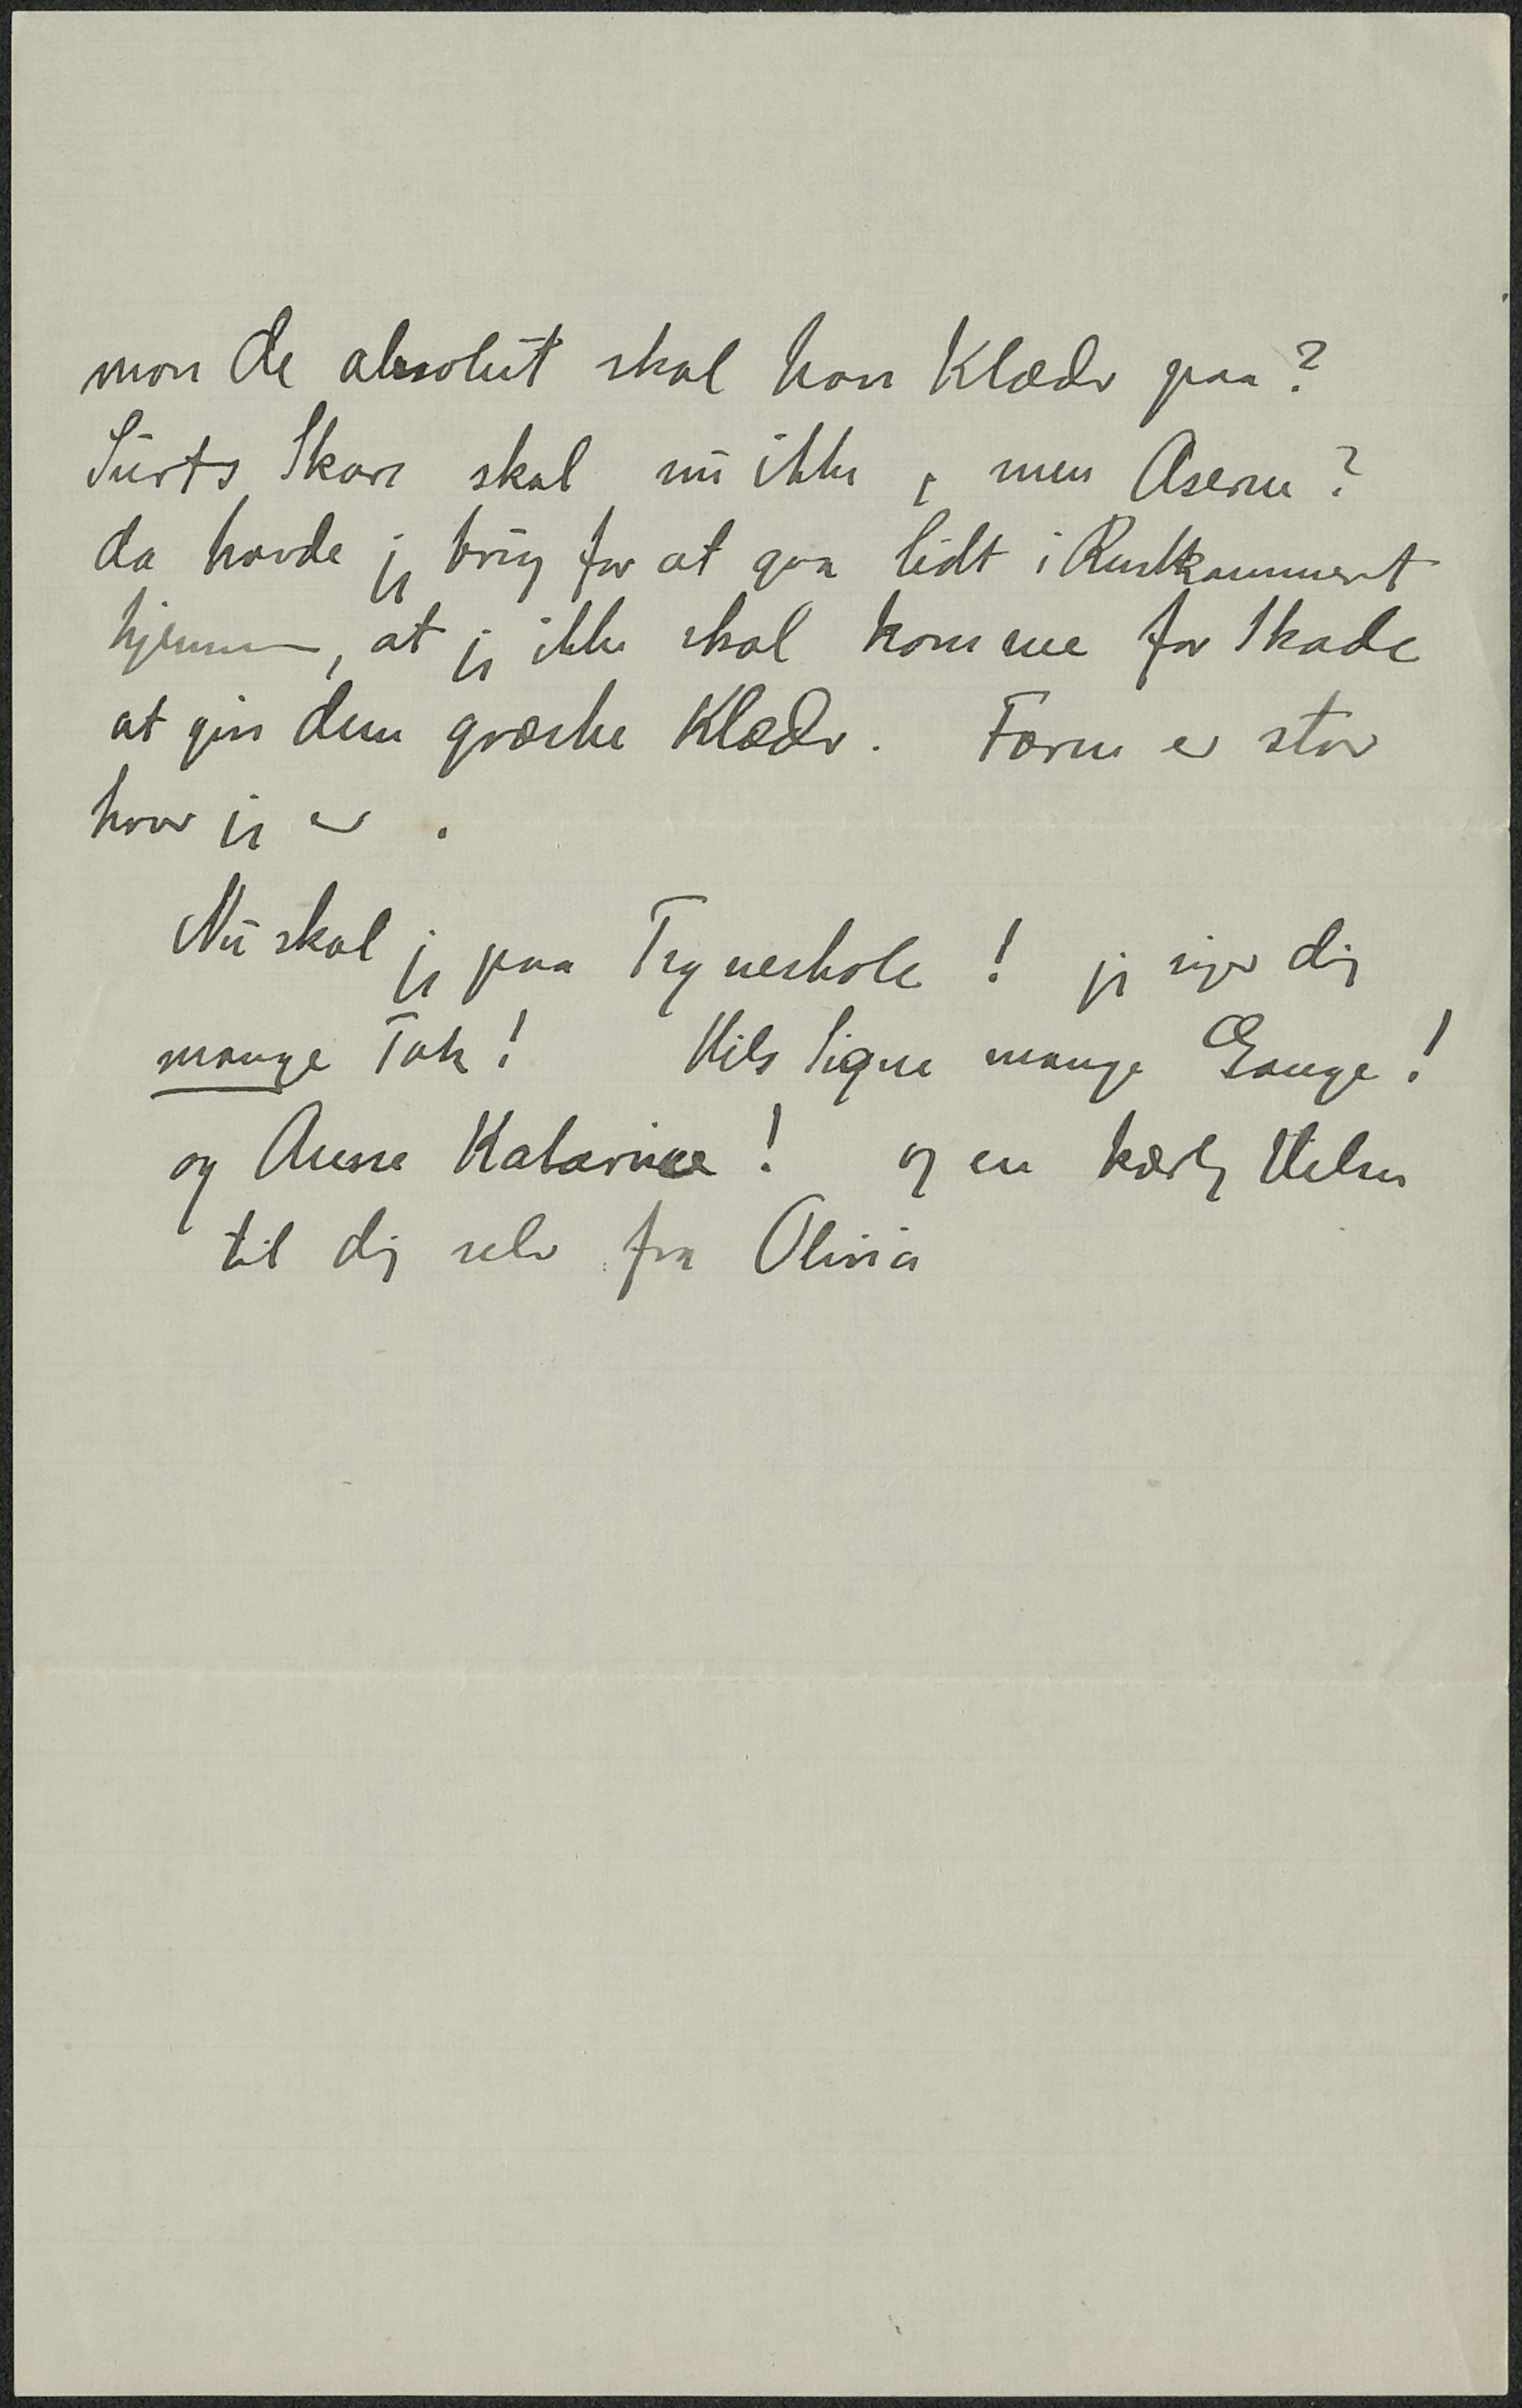 mon de absolut skal have Klæder paa?
Surts Skare skal nu ikke, men Aserne?
da havde jeg brug for at gaa lidt i Rustkammeret
hjemme, at jeg ikke skal komme for Skade
at give dem græske Klæder. Faren er stor
hvor jeg er.
Nu skal jeg paa Tegneskole! jeg siger dig
mange Tak! Hils Signe mange Gange!
og Anne Katarine! og en kærlig Hilsen
til dig selv fra Olivia